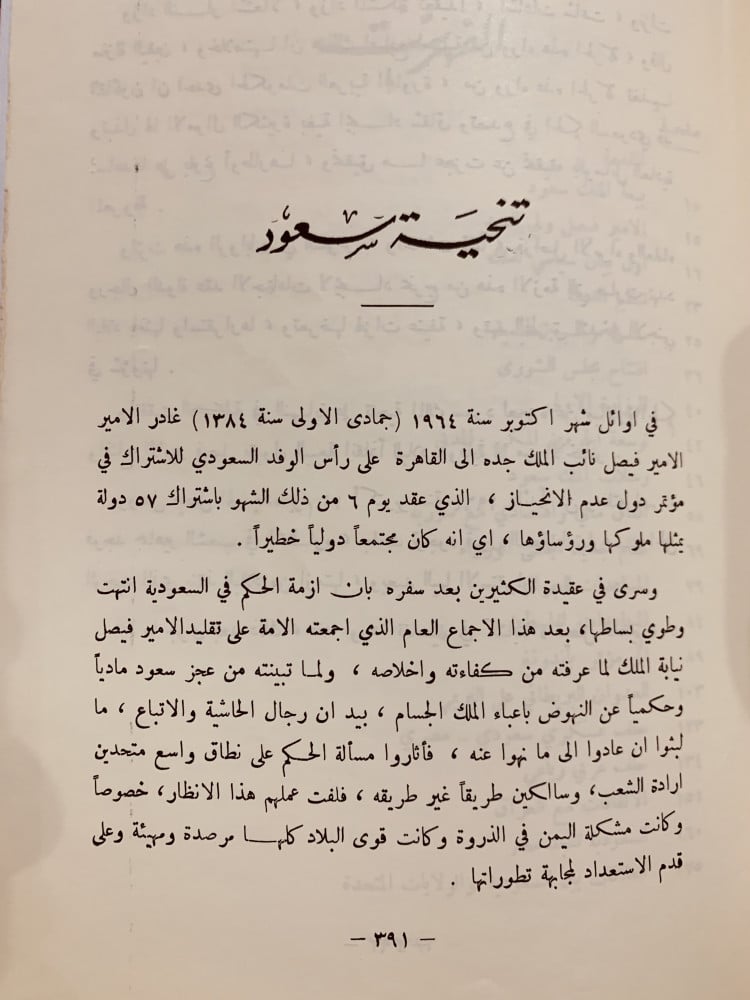 تنحية سعود
في اوائل شهر اكتوبر سنة ١٩٦٤ (جمادى الاولى سنة ١٣٨٤) غادر الامير
الامير فيصل نائب الملك جده الى القاهرة على رأس الوفد السعودي للاشتراك في
مؤتمر دول عدم الانحياز ، الذي عقد يوم ٦ من ذلك الشهو باشتراك ٥٧ دولة
يمثلها ملوكها ورؤساؤها ، اي انه كان مجتمعاً دولياً خطيراً .
وسرى في عقيدة الكثيرين بعد سفره بان ازمة الحكم في السعودية انتهت
وطوي بساطها، بعد هذا الاجماع العام الذي اجمعته الامة على تقليدالامير فيصل
نيابة الملك لما عرفته من كفاءته واخلاصه ، ولما تبينته من عجز سعود مادياً
وحكمياً عن النهوض باعباء الملك الجسام ، بيد ان رجال الحاشية والاتباع ، ما
لبثوا ان عادوا الى ما نهوا عنه ، فأثاروا مسألة الحكم على نطاق واسع متحدين
ارادة الشعب، وساالكين طريقاً غير طريقه ، فلفت عملهم هذا الانظار، خصوصاً
وكانت مشكلة اليمن في الذروة وكانت قوى البلاد كلها مرصدة ومهيئة وعلى
قدم الاستعداد لمجابهة تطوراتها .
— ٣٩١ —